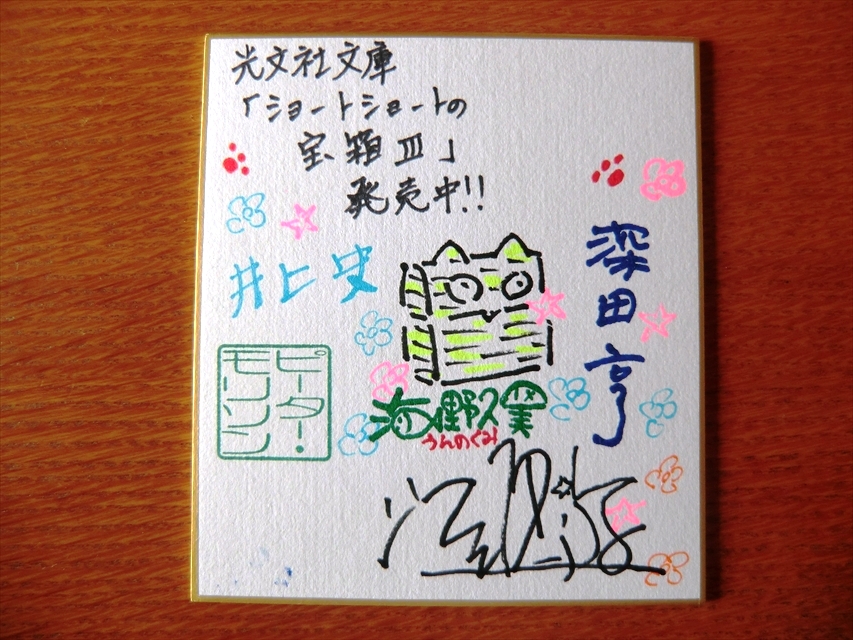 光文社文庫
「ショートショートの
宝箱Ⅲ」
発売中!!
深田亨
井上史
ピーター・
モリソン
海野久実
うんのくみ